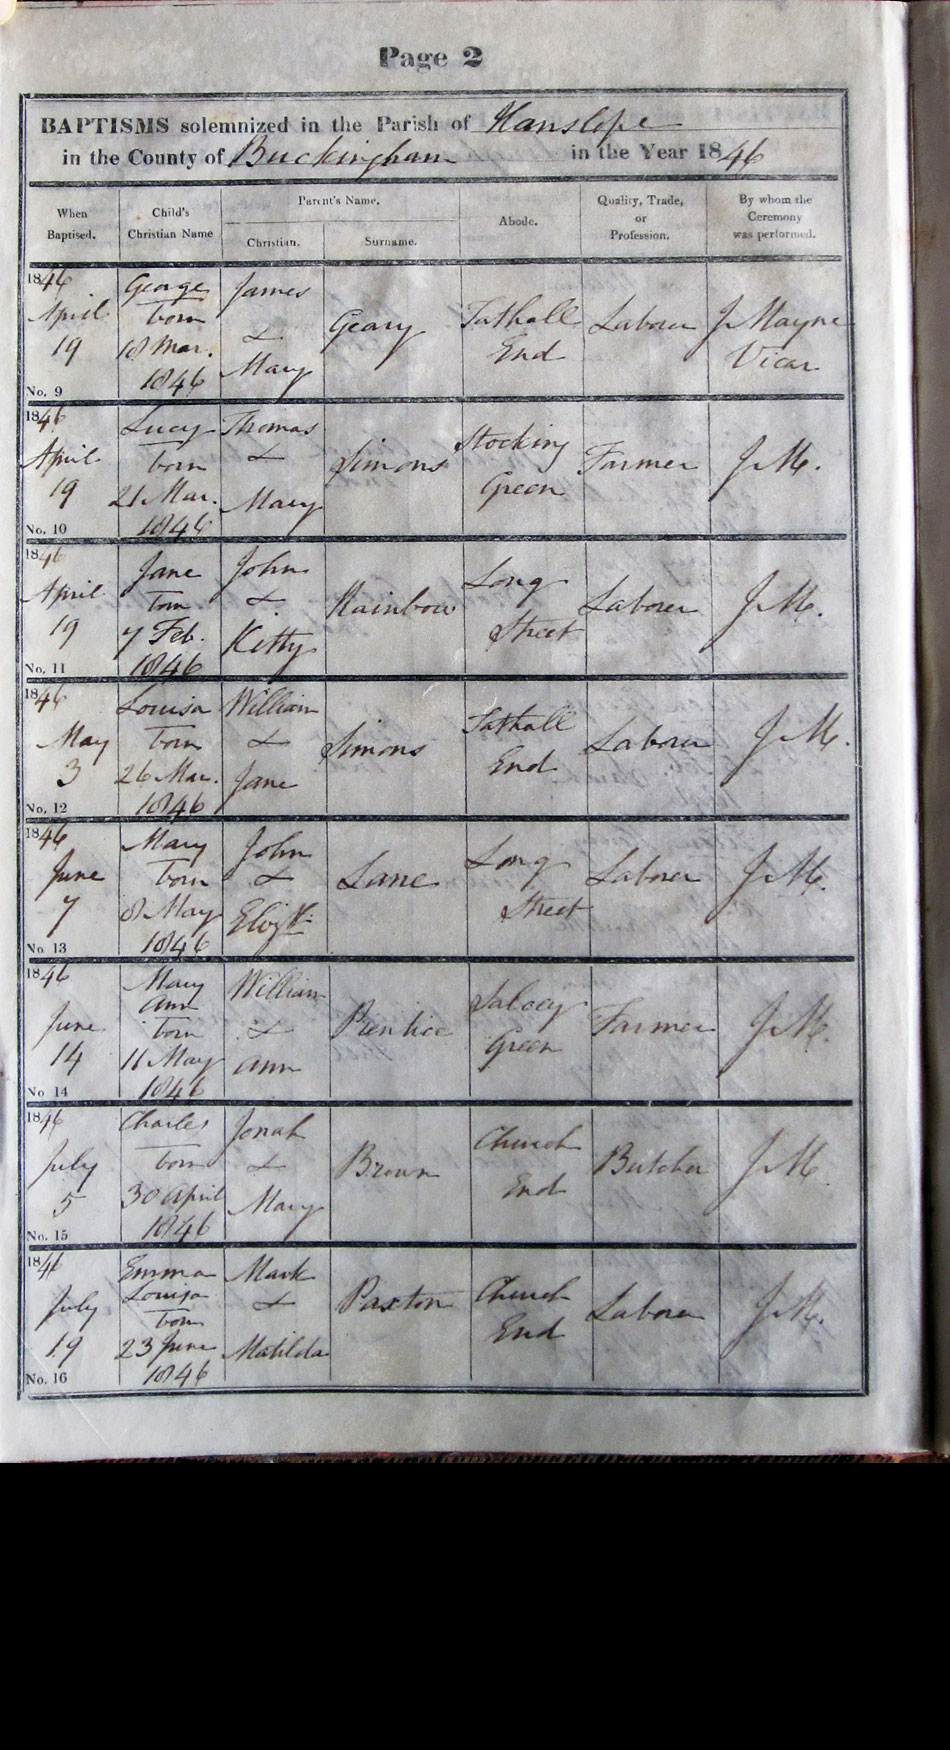 Page 2
BAPTISMS solemnized in the Parish of Hanslope
in the County of Buckingham in the Year 1846
When Baptised.
Child's Christian Name
Parent's Name.
Christian.
Surname.
Abode.
Quality, Trade, or Profession.
By whom the Ceremony was performed.
1846
April
19
No. 9
George
born
18 Mar.
1846
James
&
Mary
Geary
Tathall
End
Laborer
J Mayne
Vicar
1846
April
19
No. 10
Lucy
born
21 Mar.
1846
Thomas
&
Mary
Simons
Stocking
Green
Farmer
J M.
1846
April
19
No. 11
Jane
born
7 Feb.
1846
John
&
Kitty
Rainbow
Long
Street
Laborer
J M.
1846
May
3
No. 12
Louisa
born
26 Mar.
1846
William
&
Jane
Simons
Tathall
End
Laborer
J M.
1846
June
7
No. 13
Mary
born
8 May
1846
John
&
Eliz th:
Lane
Long
Street
Laborer
J M.
1846
June
14
No 14
Mary
Ann
born
11 May
1846
William
&
Ann
Prentice
Salcey
Green
Farmer
J M.
1846
July
5
No. 15
Charles
born
30 April
1846
Jonah
&
Mary
Brown
Church
End
Butcher
J M.
1846
July
19
No. 16
Emma
Louisa
born
23 June
1846
Mark
&
Matilda
Paxton
Church
End
Laborer
J M.